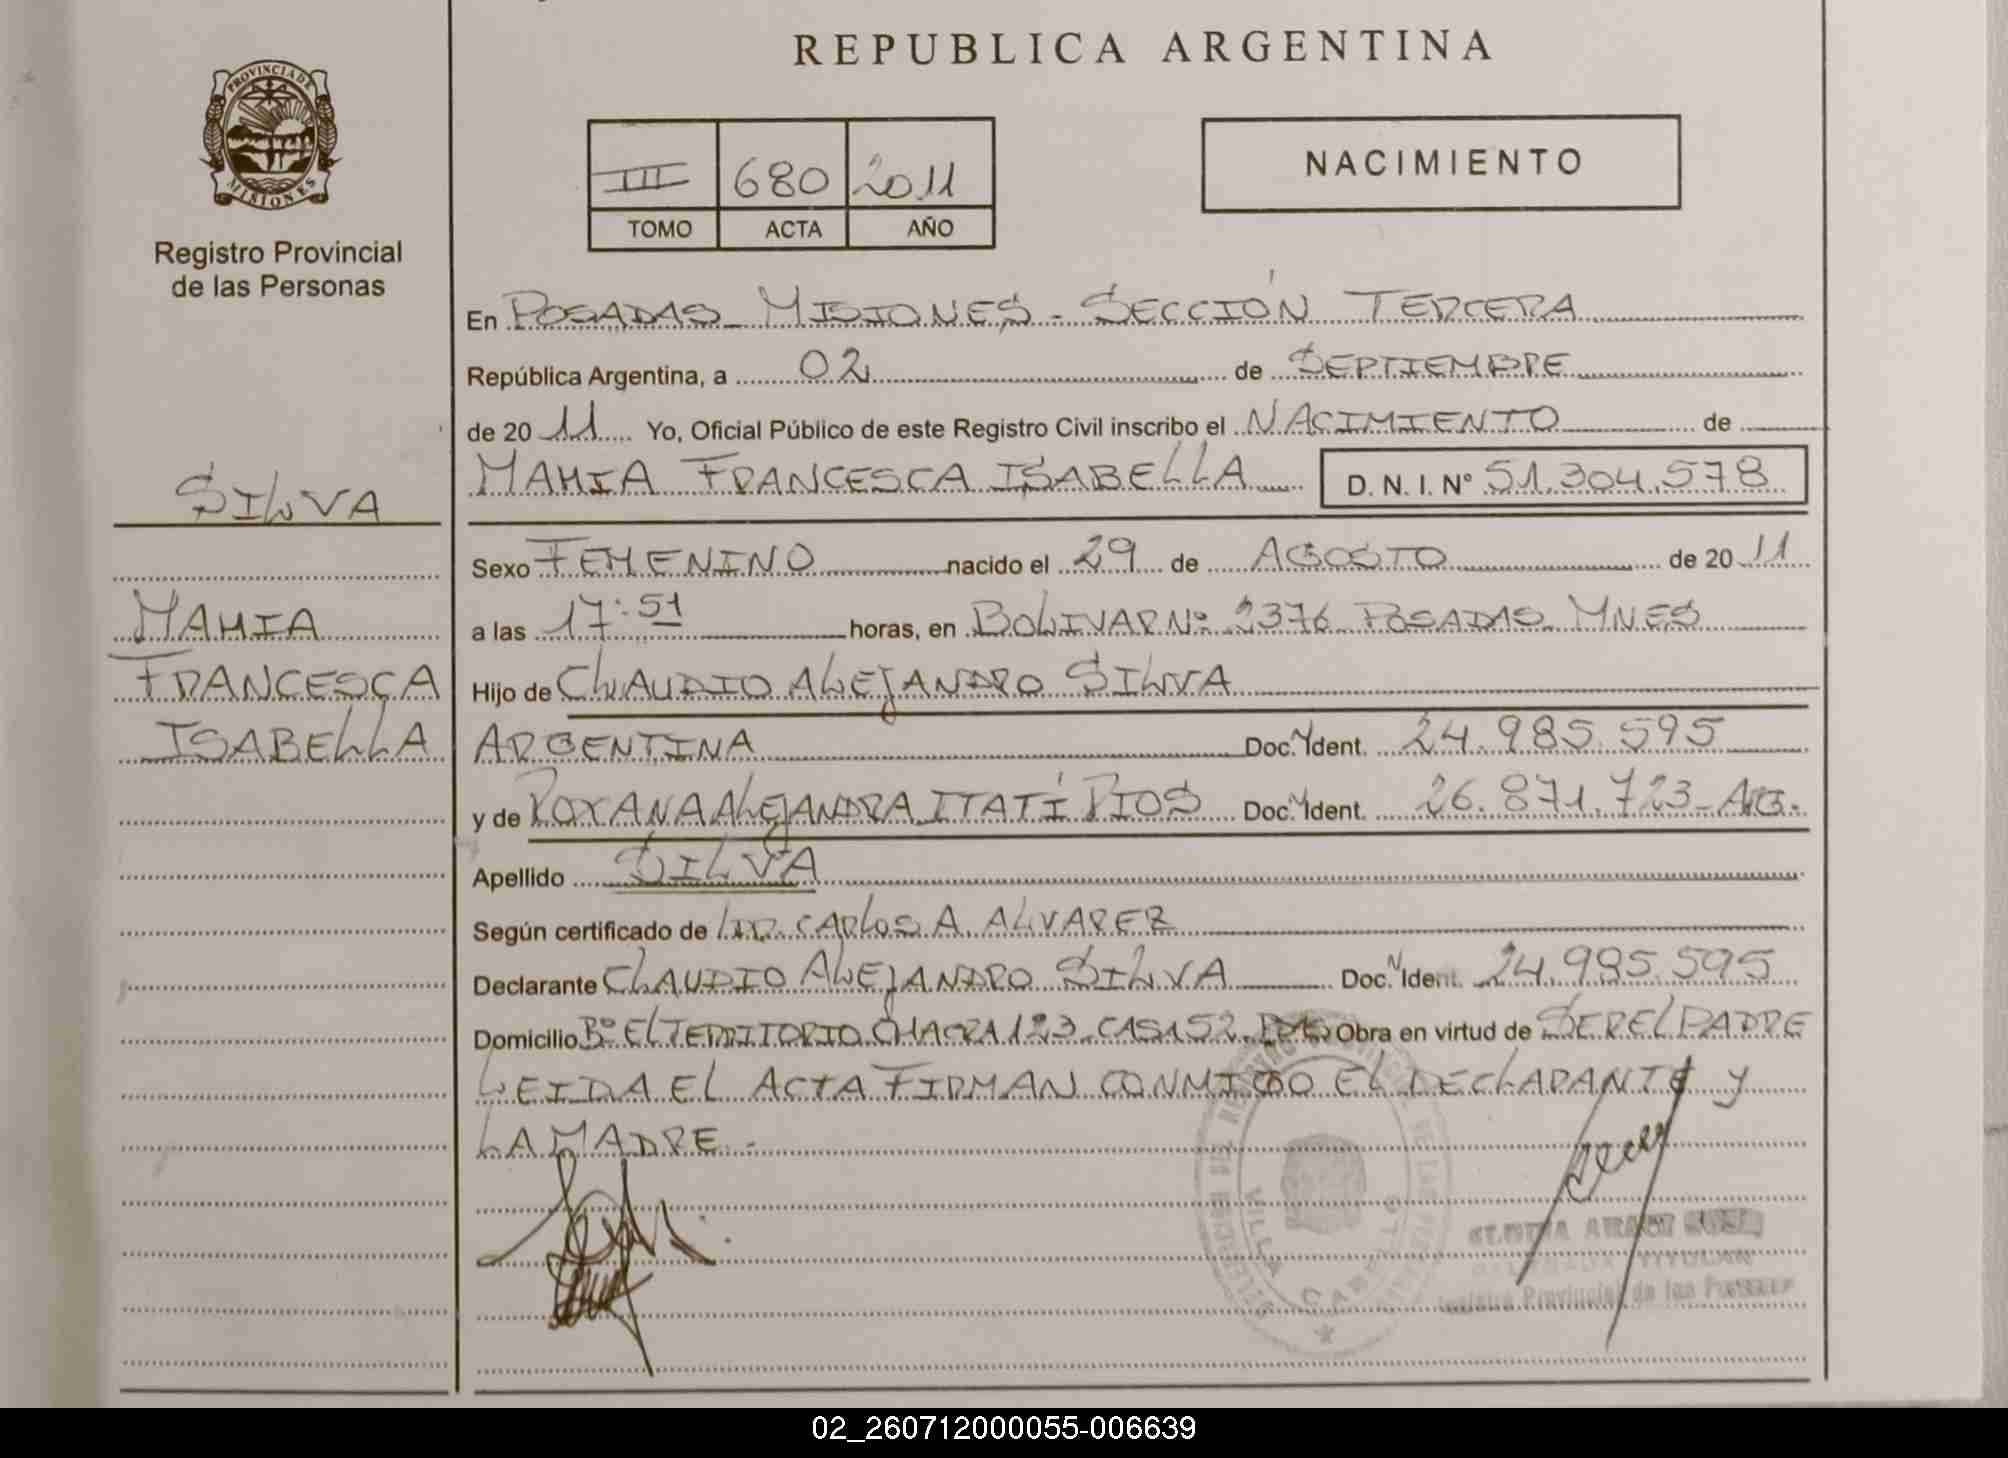 REPUBLICA ARGENTINA
PROVINCIA DE
MISIONES
Registro Provincial
de las Personas
III 680 2011
TOMO ACTA AÑO
NACIMIENTO
En POSADAS - MISIONES - SECCIÓN TERCERA
República Argentina, a 02 de SEPTIEMBRE
de 2011 Yo, Oficial Público de este Registro Civil inscribo el NACIMIENTO de
MAHIA FRANCESCA ISABELLA D. N. I. Nº 51.304.578
SILVA
MAHIA
FRANCESCA
ISABELLA
Sexo FEMENINO nacido el 29 de AGOSTO de 2011
a las 17:51 horas, en BOLIVAR Nº 2376 POSADAS MNES
Hijo de CLAUDIO ALEJANDRO SILVA
ARGENTINA Doc. Ident. 24.985.595
y de ROXANA ALEJANDRA ITATÍ RIOS Doc. Ident. 26.871.723 - ARG.
Apellido SILVA
Según certificado de CARLOS A. ALVAREZ
Declarante CLAUDIO ALEJANDRO SILVA Doc. Ident. 24.985.595
Domicilio Bº EL TERRITORIO CHACRA 123 CASA 52 Obra en virtud de SER EL PADRE
LEIDA EL ACTA FIRMAN CONMIGO EL DECLARANTE y
LA MADRE.-
VILLA CABELLO
TITULAR
Provincial de las Personas
02_260712000055-006639